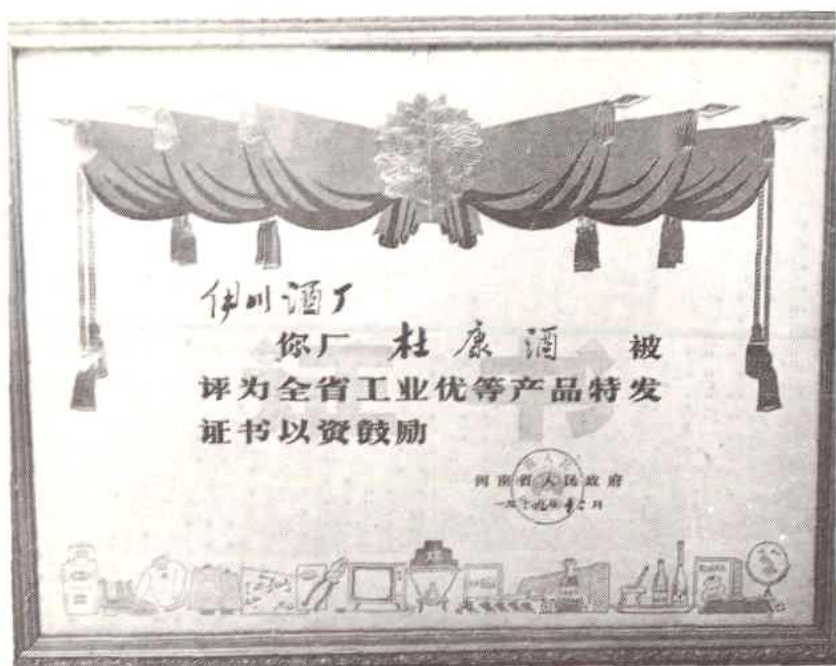 伊川酒厂
你厂 杜康酒 被
评为全省工业优等产品特发
证书以资鼓励
证书
河南省人民政府